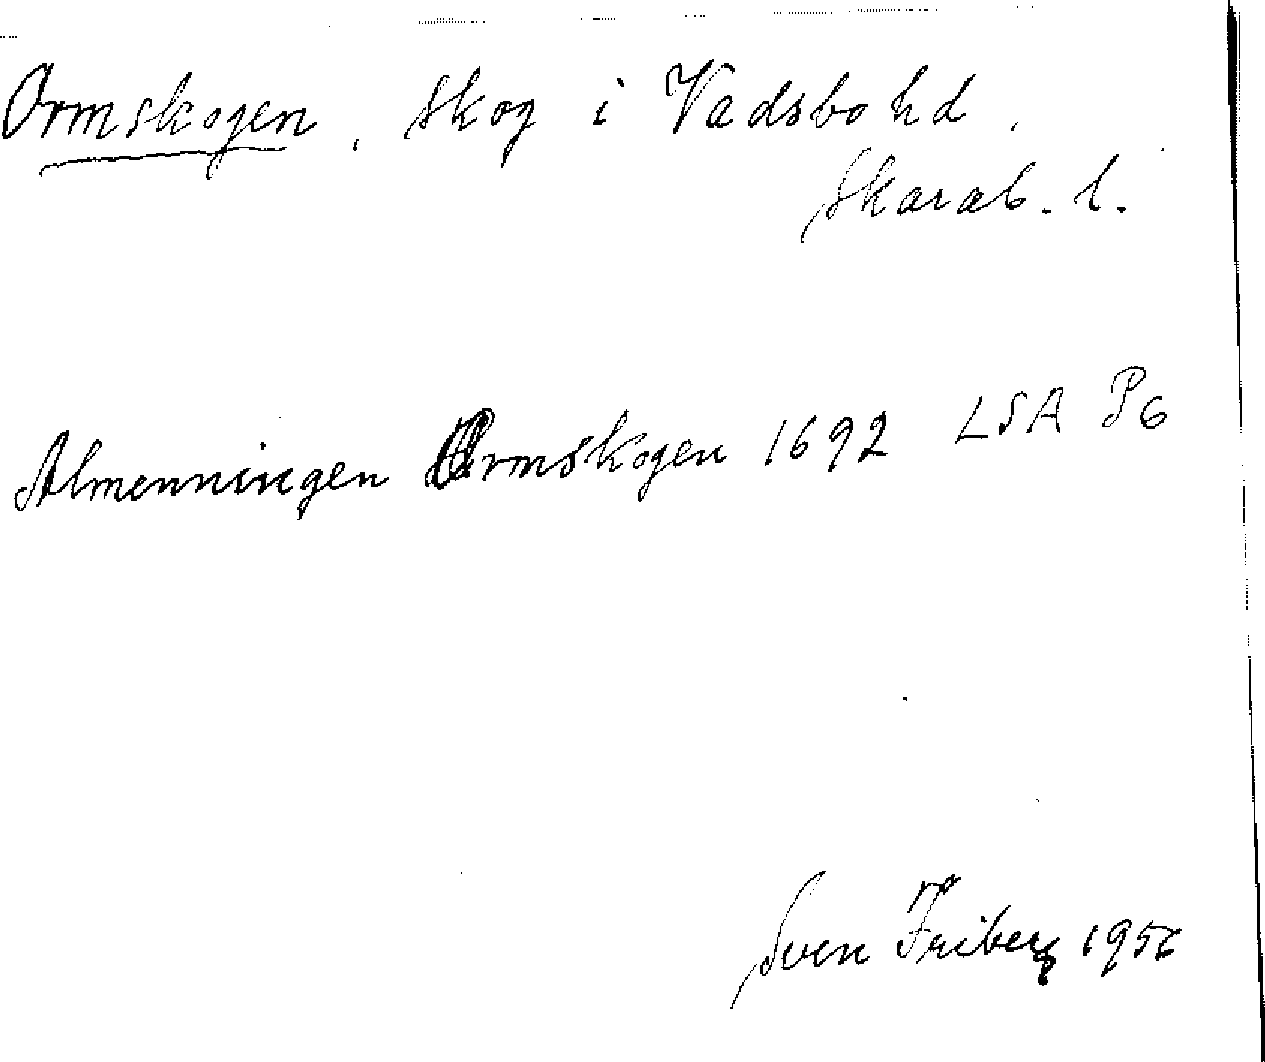 Ormskogen, skog i Vadsbo hd,
Skarab. l.
Almenningen Ormskogen 1692 LSA P6
Sven Friberg 1956